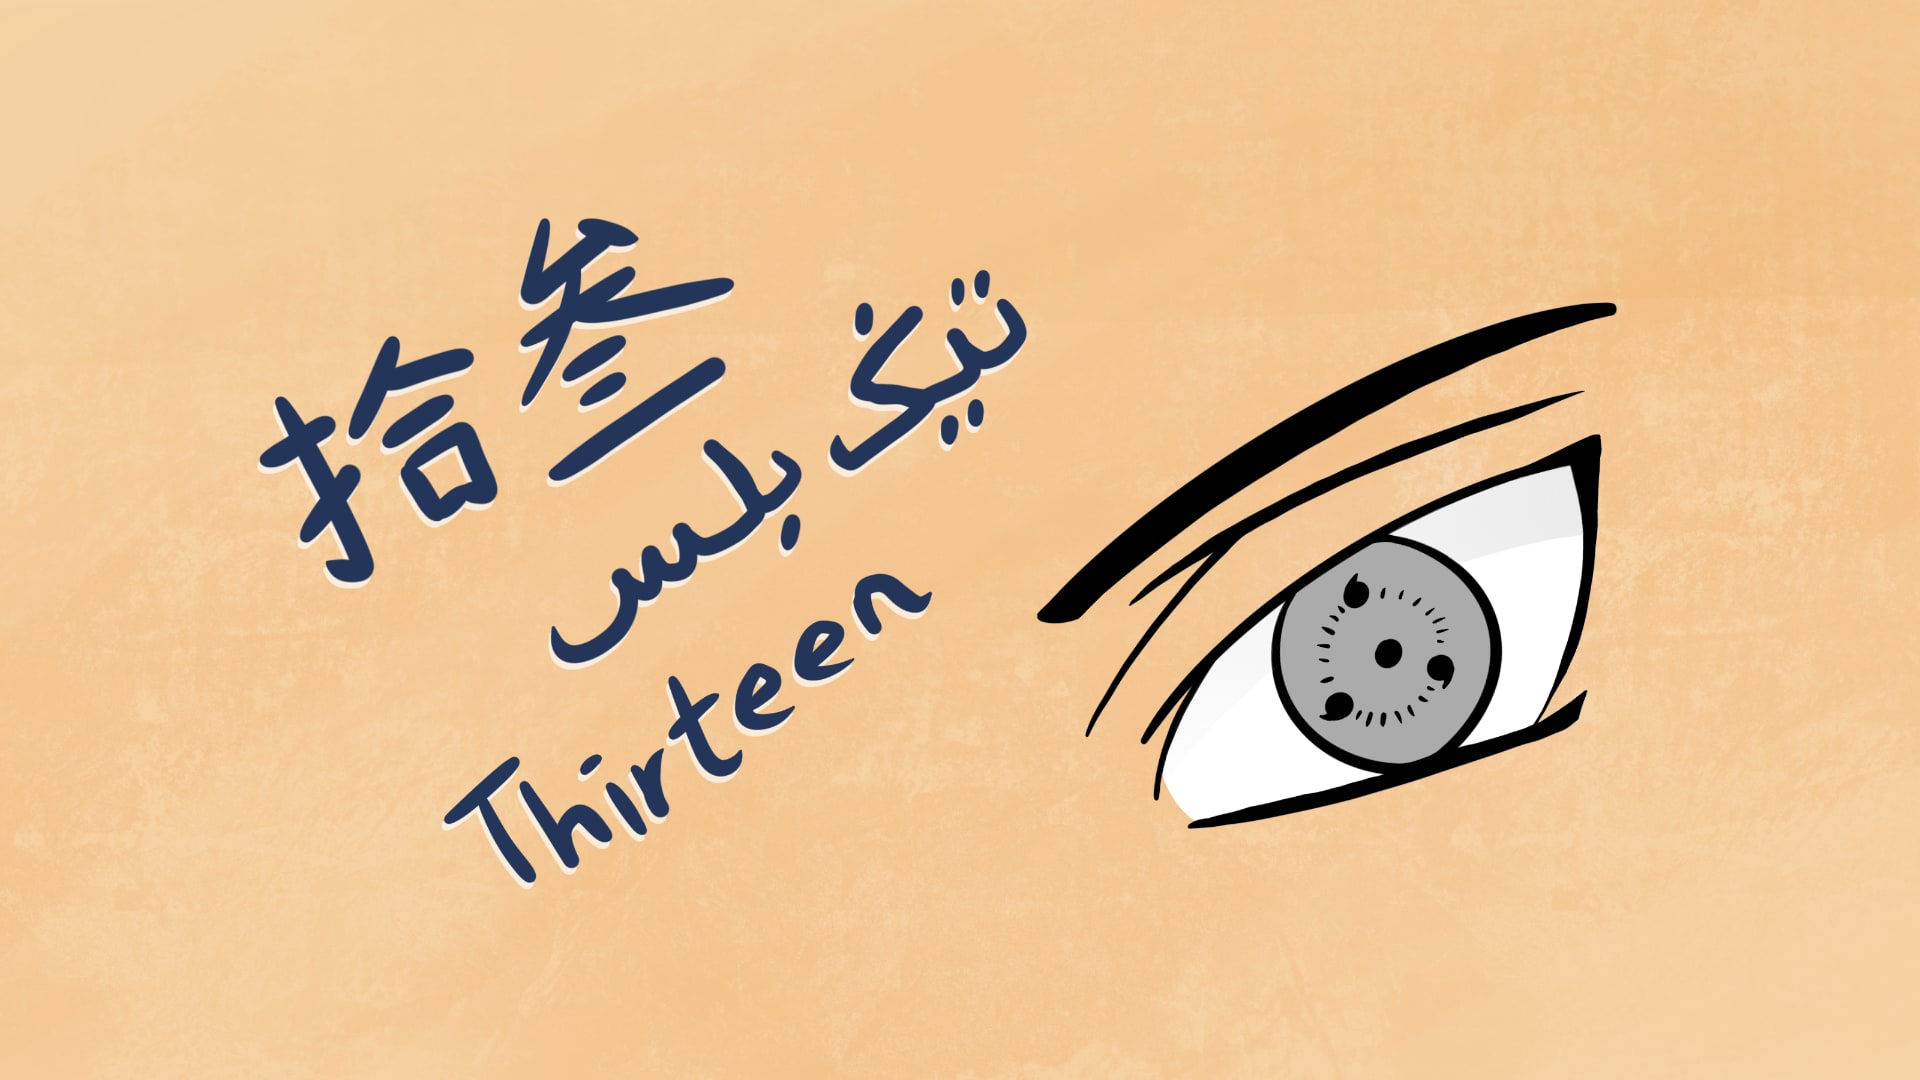 拾叁
تيݢ بلس
Thirteen